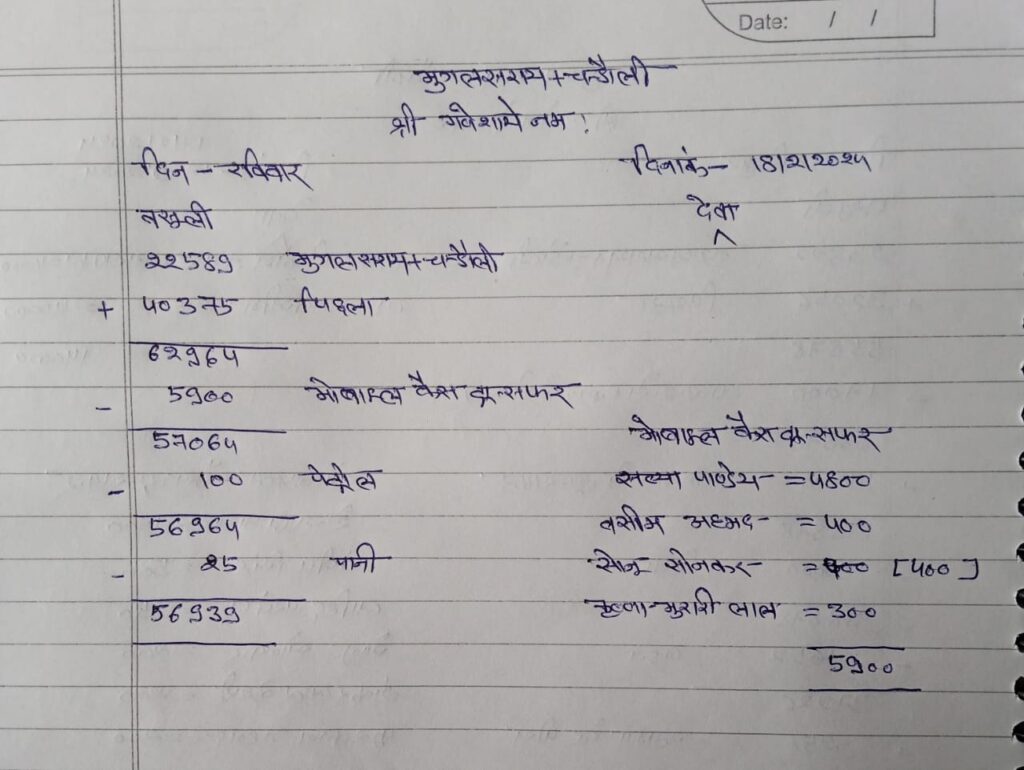 Date: / /
मुगलसराय+चन्दौली
श्री गणेशाये नम!
दिन - रविवार दिनांक- 18/2/2024
वसूली देवा
^
22589 मुगलसराय+चन्दौली
+ 40375 पिछला
62964
- 5900 मोबाइल कैस ट्रान्सफर
57064 मोबाइल कैस ट्रान्सफर
- 100 पेट्रोल सत्या पाण्डेय- =4800
56964 वसीम अहमद- =400
- 25 पानी सोनू सोनकर- =400 [400]
56939 कृष्णा-मुरारी लाल =300
5900